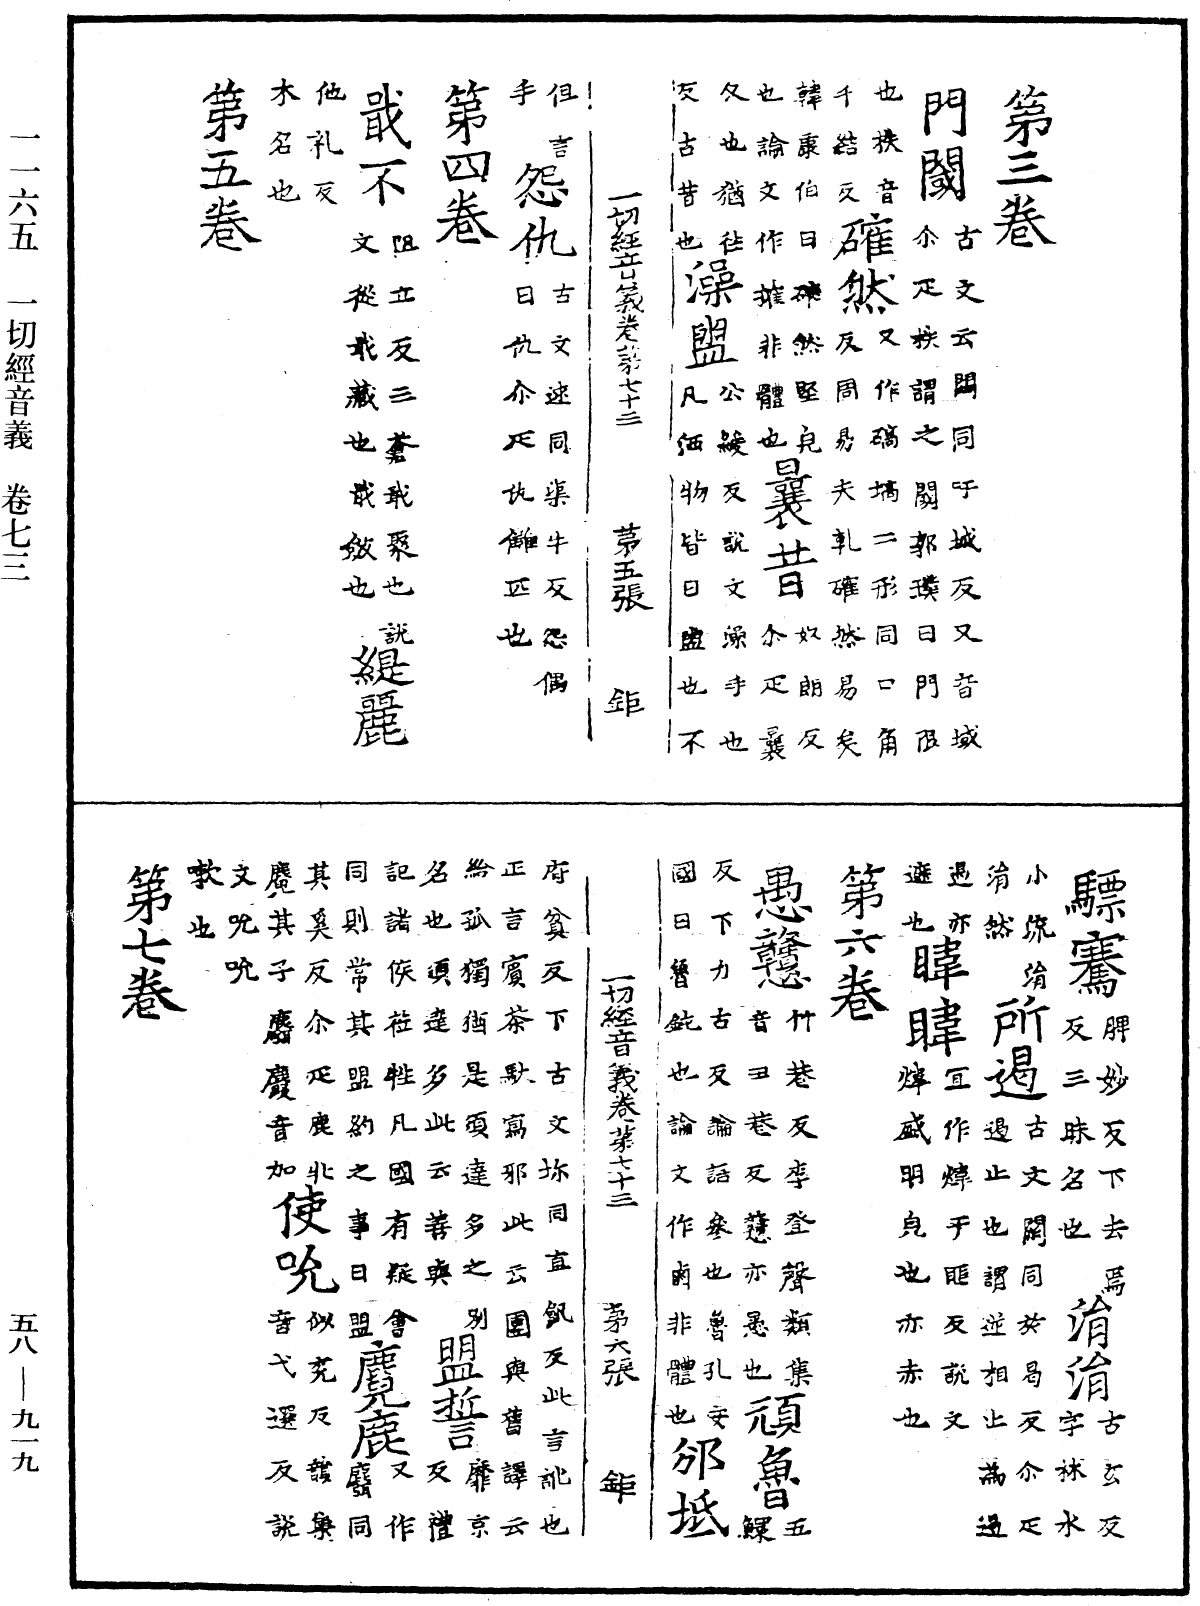 第三卷
門閾 古文云閪同吁域反又音域尒疋柣謂之閾郭璞曰門限
也柣音千結反 確然 又作碻塙二形同口角反周易夫乹確然易矣
韓康伯曰確然堅皃也論文作搉非體也 曩昔 奴朗反尒疋曩
久也猶往反古昔也 澡盥 公緩反說文澡手也凡洒物皆曰盥也不
一切經音義卷第七十三 第五張 鉅
但言手 怨仇 古文逑同渠牛反怨偶曰仇尒疋仇讎匹也
第四卷
戢不 阻立反三蒼戢聚也說文從戢藏也戢斂也 緹麗
他礼反木名也
第五卷
驃騫 脾妙反下去焉反三昧名也 涓涓 古玄反字林水
小流涓涓然 所遏 古文閼同於曷反尒疋遏止也謂逆相止為遏
遏亦遮也 暐暐 冝作煒于匪反說文煒盛明皃也亦赤也
第六卷
愚戇 竹巷反李登聲類集音丑巷反戇亦愚也 頑魯 五鰥
反下力古反論語參也魯孔安國曰魯鈍也論文作鹵非體也 邠坻
一切經音義卷第七十三 第六張 鉅
府貧反下古文坁同直飢反此言訛也正言賓荼馱寫邪此云團與舊譯云
給孤獨猶是須達多之別名也須達多此云善與 盟誓 靡京反禮
記諸侯莅牲凡國有疑會同則常其盟約之事曰盟 麑鹿 又作麛同
其奚反尒疋鹿牝麀其子麛麌音加 使吮 似兖反韻集音弋選反說
文吮吮嗽也
第七卷
一一六五 一切經音義 卷七三
五八—九一九